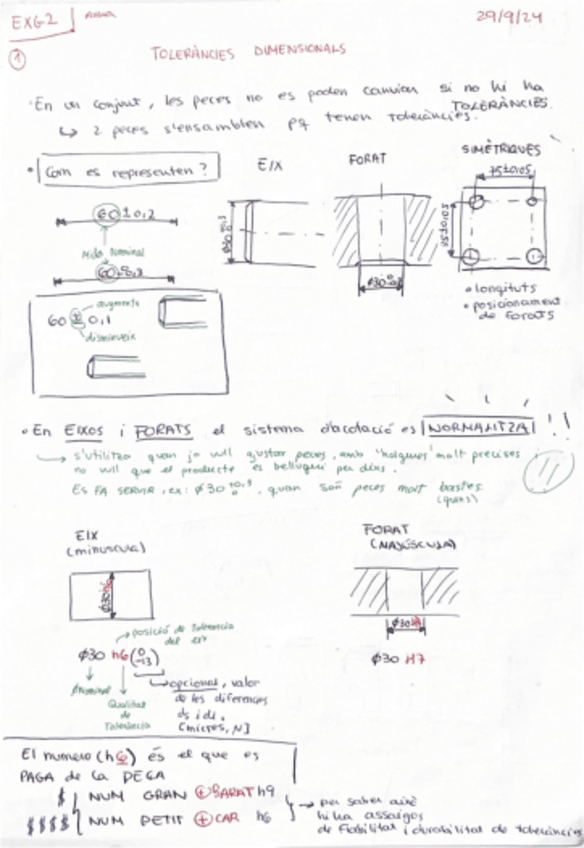 EXG2
29/9/24
1
TOLERÀNCIES DIMENSIONALS
· En un conjunt, les peces no es poden canviar si no hi ha TOLERÀNCIES.
↳ 2 peces s'ensamblen pq tenen toleràncies.
• Com es representen?
EIX
FORAT
SIMÈTRIQUES
60 ± 0,2
Mida Nominal
75±0,05
• longituts
• posicionament de forats
augmenta
60 ± 0,1
disminueix
• En EIXOS i FORATS el sistema d'acotació és NORMALITZAT!!
→ s'utilitza quan jo vull ajustar peces, amb "holgures" molt precises,
no vull que el producte es bellugui per dins.
ES FA SERVIR, ex: ø30, quan són peces molt bastes
EIX
(minúscula)
FORAT
(MAJÚSCULA)
ø30 h6
ø30 H7
→ posició de tolerància del eix
ø30 h6 (0 -13)
ø30 H7
ønominal
Qualitat de Tolerància
→ opcional, valor
de les diferències
ds i di.
El numero (h6) és el que es
PAGA de la PEÇA
$ | NUM GRAN ⊕ BARAT h9
$$$$ | NUM PETIT ⊕ CAR h6
→ per saber això
hi ha assaigos
de fiabilitat i durabilitat de toleràncies